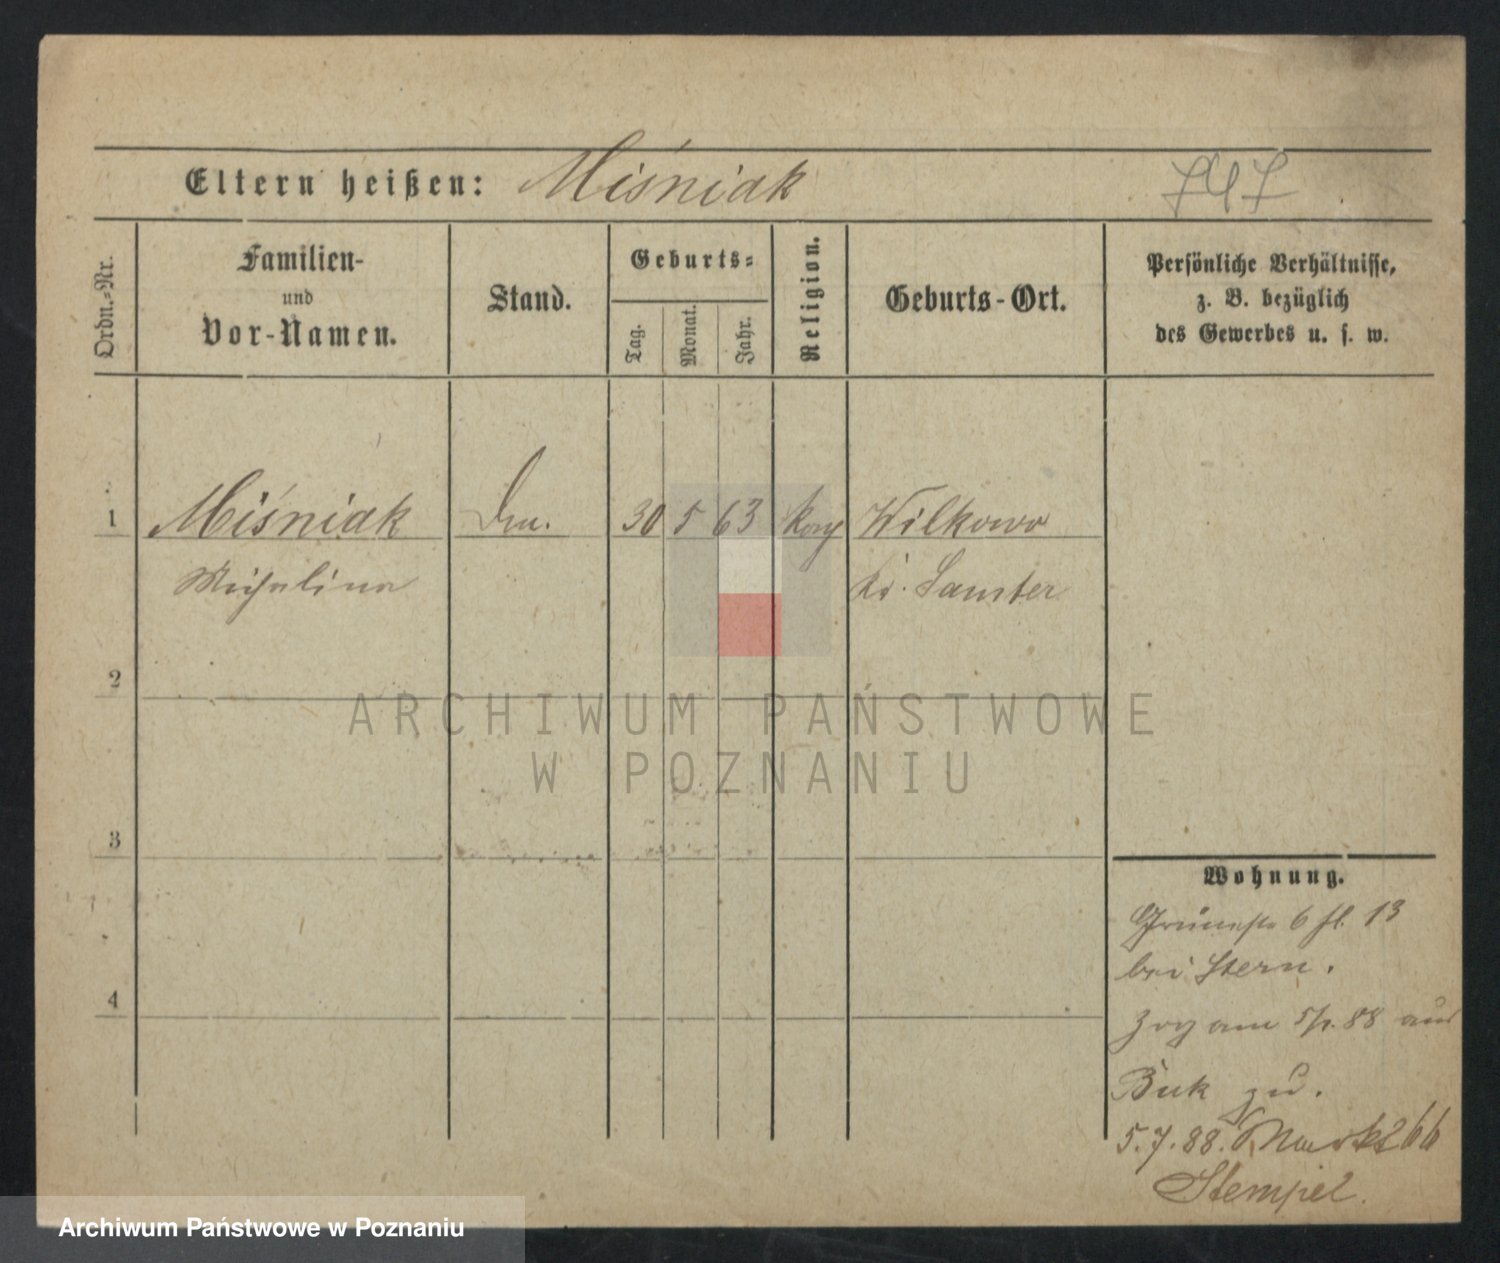 Eltern heißen: Miśniak 747
Ordn.-Nr.
Familien-
und
Vor-Namen.
Stand.
Geburts-
Tag.
Monat.
Jahr.
Religion.
Geburts-Ort.
Persönliche Verhältnisse,
z. B. bezüglich
des Gewerbes u. s. w.
1 Miśniak 30 5 63 Wilkowo
Michalina Kr. Samter
2
ARCHIWUM PAŃSTWOWE
W POZNANIU
3
Wohnung.
Grünestr 6 13
bei Stern.
4
Zog am 88 aus
Buk zu.
5.7.88. Markt 66
Stempel.
Archiwum Państwowe w Poznaniu